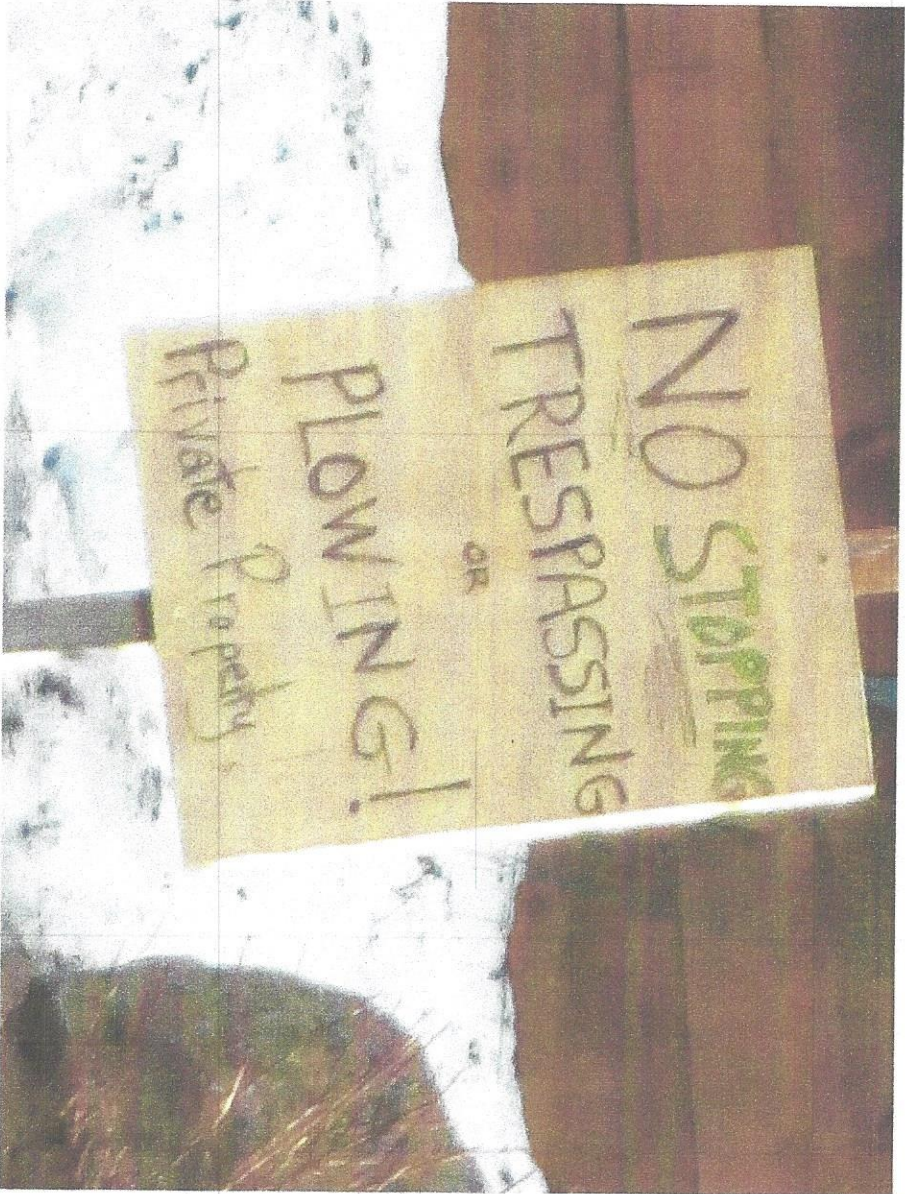 NO STOPPING
TRESPASSING
OR
PLOWING!
Private Property